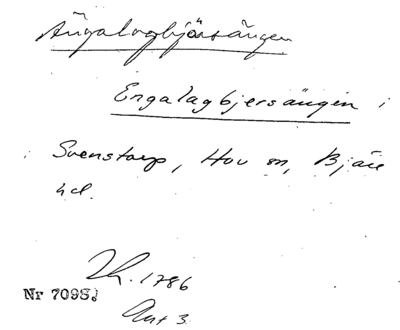 Ängalagbjärsängen
Engalagbjersängin i
Svenstorp, Hov sn, Bjäre
hd.
Lh. 1786
Nr 7098.
Akt 3.